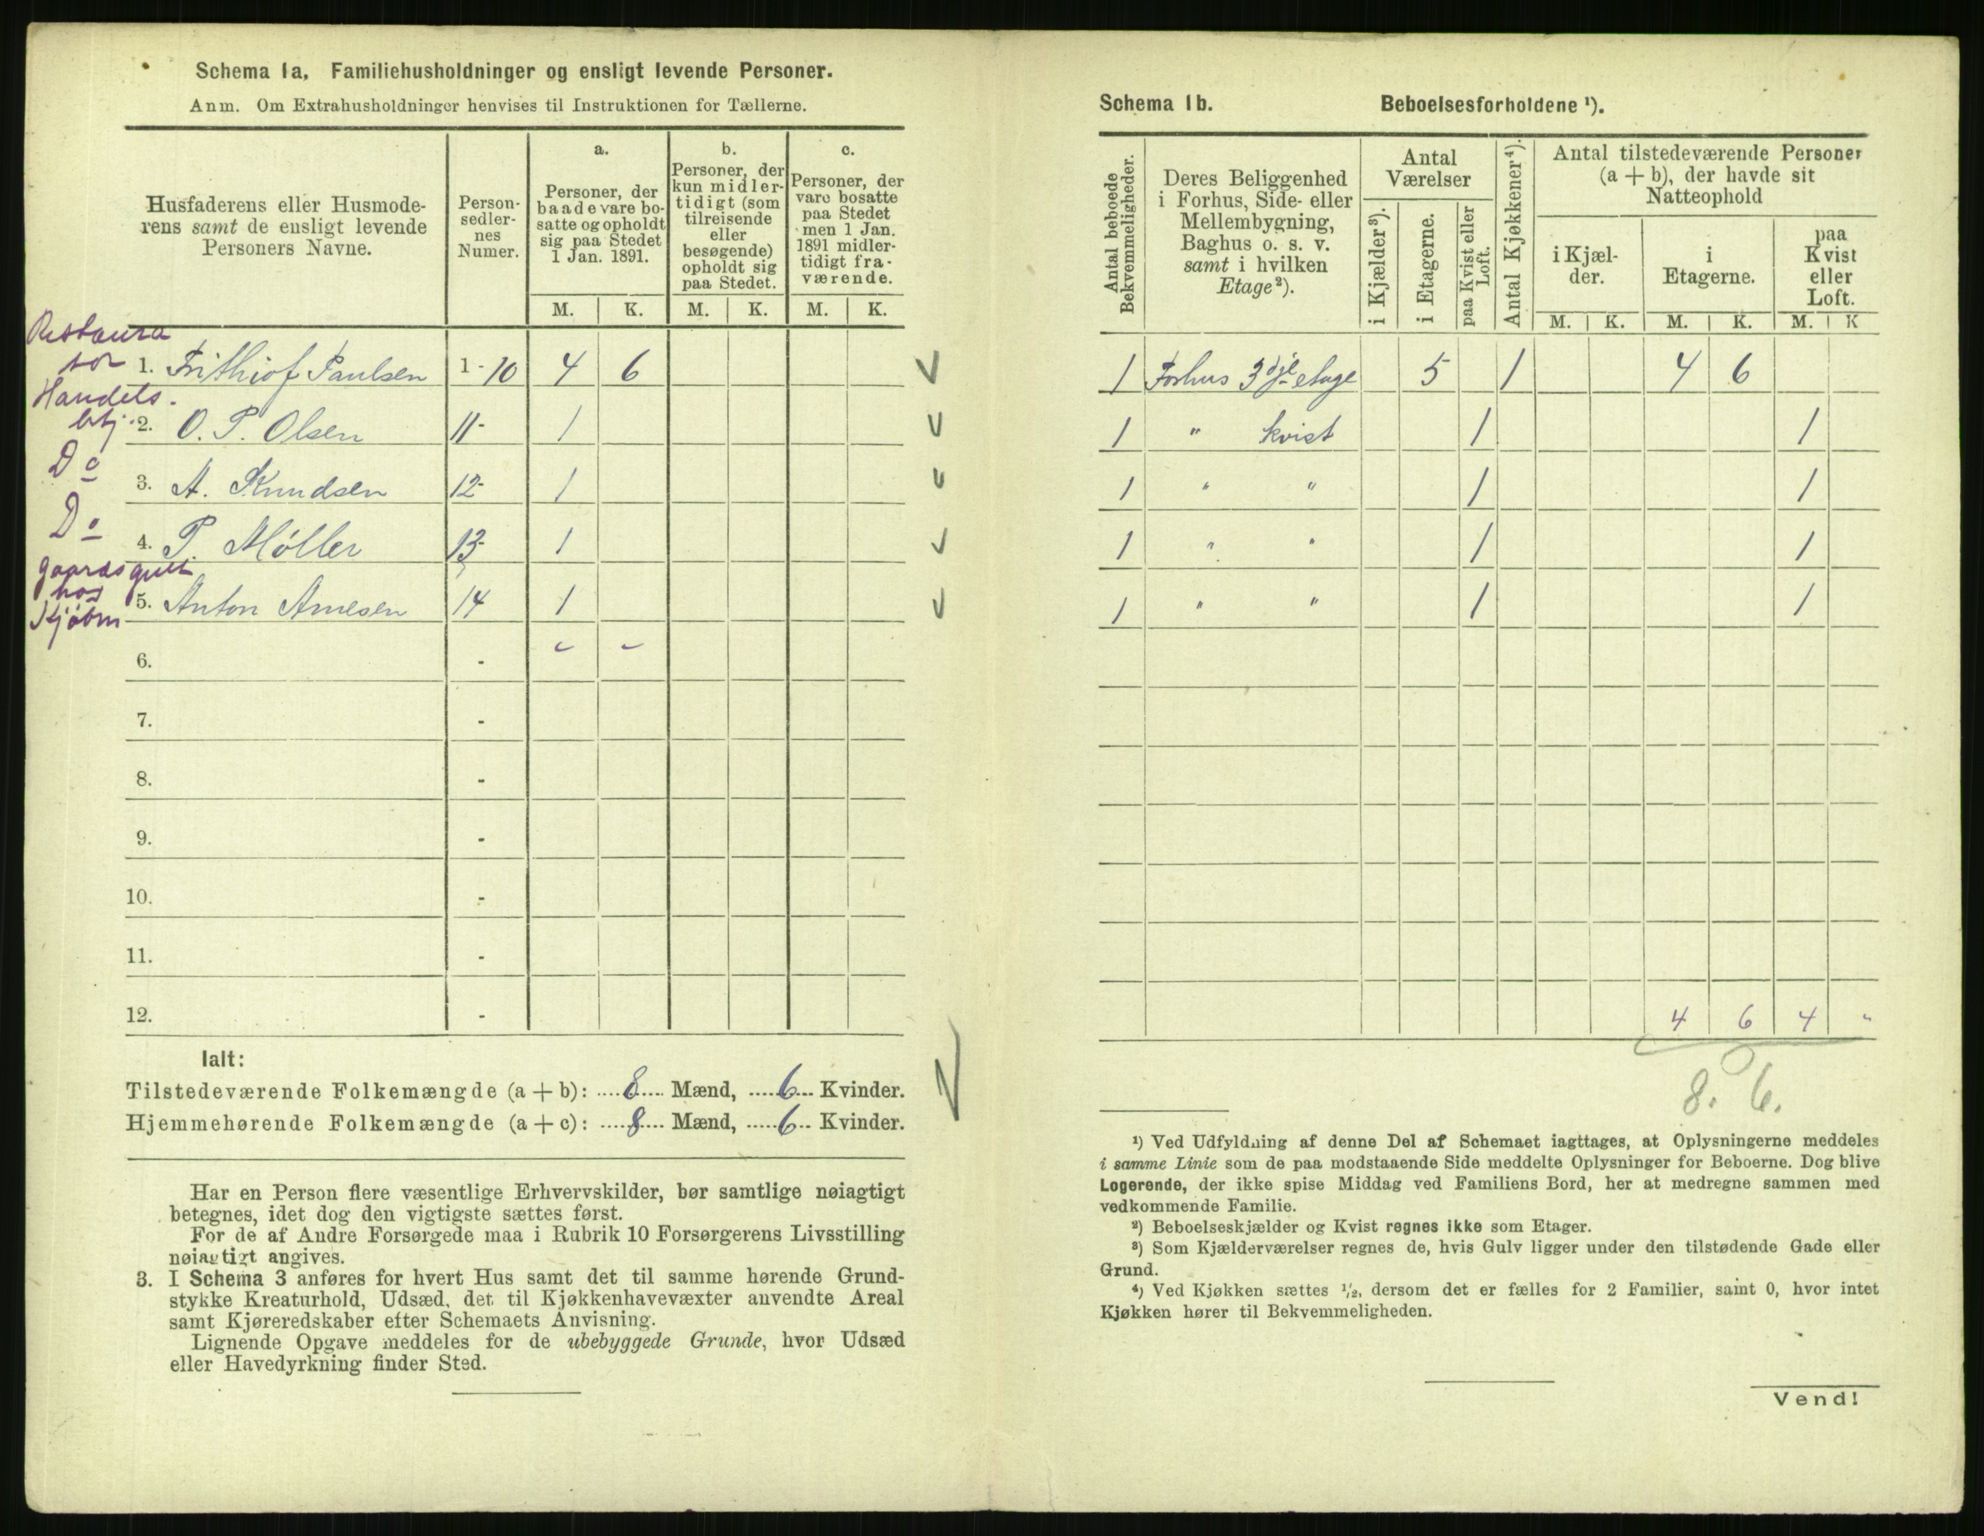 Schema 1a, Familiehusholdninger og ensligt levende Personer.
Anm. Om Extrahusholdninger henvises til Instruktionen for Tællerne.
Husfaderens eller Husmode-
rens samt de ensligt levende
Personers Navne.
Person-
sedler-
nes
Numer.
a.
Personer, der
baade vare bo-
satte og opholdt
sig paa Stedet
1 Jan. 1891.
b.
Personer, der
kun midler-
tidigt (som
tilreisende
eller
besøgende)
opholdt sig
paa Stedet.
c.
Personer, der
vare bosatte
paa Stedet
men 1 Jan.
1891 midler-
tidigt fra-
værende.
M. K. M. K. M. K.
Restaura
tør
1. Frithiof Paulsen 1-10 4 6
Handels-
btj. 2. O. P. Olsen 11- 1
Do 3. A. Knudsen 12- 1
Do 4. P. Møller 13- 1
gaardsgutt
hos
Kjøbm 5. Anton Arnesen 14 1
6. -
7. -
8. -
9. -
10. -
11. -
12. -
Ialt:
Tilstedeværende Folkemængde (a + b): 8 Mænd, 6 Kvinder.
Hjemmehørende Folkemængde (a + c): 8 Mænd, 6 Kvinder.
Har en Person flere væsentlige Erhvervskilder, bør samtlige nøiagtigt
betegnes, idet dog den vigtigste sættes først.
For de af Andre Forsørgede maa i Rubrik 10 Forsørgerens Livsstilling
nøiagtigt angives.
3. I Schema 3 anføres for hvert Hus samt det til samme hørende Grund-
stykke Kreaturhold, Udsæd, det til Kjøkkenhavevæxter anvendte Areal
samt Kjøreredskaber efter Schemaets Anvisning.
Lignende Opgave meddeles for de ubebyggede Grunde, hvor Udsæd
eller Havedyrkning finder Sted.
Schema 1b. Beboelsesforholdene ¹).
Antal beboede
Bekvemmeligheder.
Deres Beliggenhed
i Forhus, Side- eller
Mellembygning,
Baghus o. s. v.
samt i hvilken
Etage²).
Antal
Værelser
i Kjælder³).
i Etagerne.
paa Kvist eller
Loft.
Antal Kjøkkener⁴).
Antal tilstedeværende Personer
(a + b), der havde sit
Natteophold
i Kjæl-
der.
i
Etagerne.
paa
Kvist
eller
Loft.
M. K. M. K. M. K
1 Forhus 3dje etage 5 1 4 6
1 " kvist 1 1
1 " " 1 1
1 " " 1 1
1 " " 1 1
4 6 4 "
8. 6.
¹) Ved Udfyldning af denne Del af Schemaet iagttages, at Oplysningerne meddeles
i samme Linie som de paa modstaaende Side meddelte Oplysninger for Beboerne. Dog blive
Logerende, der ikke spise Middag ved Familiens Bord, her at medregne sammen med
vedkommende Familie.
²) Beboelseskjælder og Kvist regnes ikke som Etager.
³) Som Kjælderværelser regnes de, hvis Gulv ligger under den tilstødende Gade eller
Grund.
⁴) Ved Kjøkken sættes ¹/₂, dersom det er fælles for 2 Familier, samt 0, hvor intet
Kjøkken hører til Bekvemmeligheden.
Vend!